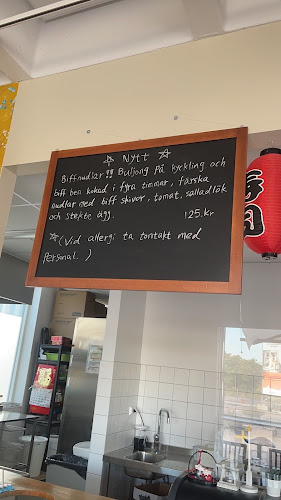 ☆ Nytt ☆
Biffnudlar!! Buljong på kyckling och
biff ben kokad i fyra timmar, färska
nudlar med biff skivor, tomat, salladlök
och stekte ägg. 125.kr
☆(Vid allergi ta tontakt med
Personal.)